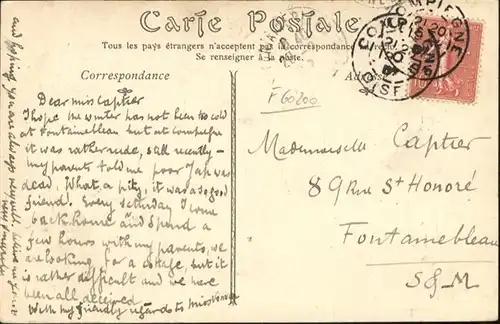 Carte Postale
Tous les pays étrangers n'acceptent pas la correspondance au recto
Se renseigner à la poste.
Correspondance
Adresse
COMPIEGNE
OISE
F60200
Dear miss Captier
I hope the winter has not been too cold
at Fontainebleau but at compiegne
it was rather rude, still recently—
my parents told me poor Jap was
dead. What a pity, it was so good
friend. Every saturday I come
back home and spend a
few hours with my parents, we
are looking for a cottage, but it
is rather difficult and we have
been all deceived
With my friendly regards to miss
and hoping you are always very well
Mademoiselle Captier
89 Rue St Honoré
Fontainebleau
S&M